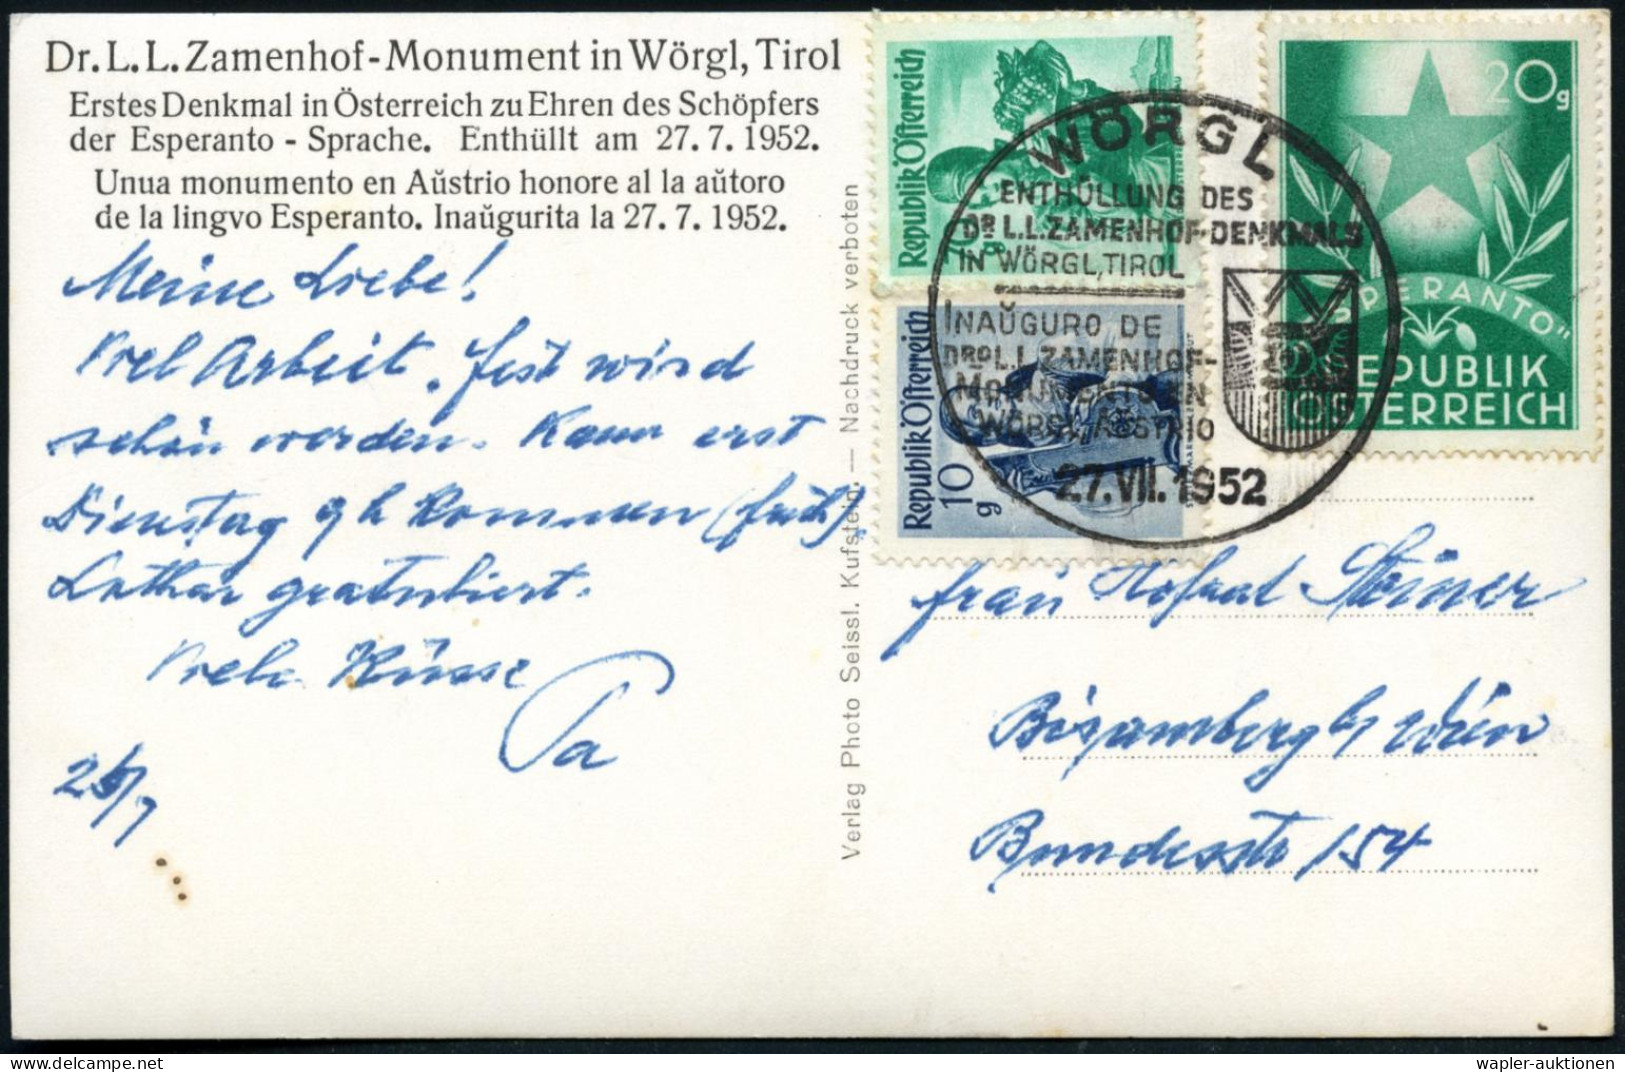 Dr. L. L. Zamenhof-Monument in Wörgl, Tirol
Erstes Denkmal in Österreich zu Ehren des Schöpfers
der Esperanto - Sprache. Enthüllt am 27. 7. 1952.
Unua monumento en Aŭstrio honore al la aŭtoro
de la lingvo Esperanto. Inaŭgurita la 27. 7. 1952.
Meine Liebe!
Viel Arbeit. Fest wird
schön werden. Kann erst
Dienstag 9h kommen (früh).
Lothar gratuliert.
Viele Küsse
Pa
Verlag Photo Seissl. Kufstein. — Nachdruck verboten
Republik Österreich
Republik Österreich
10 g
20 g
ESPERANTO"
REPUBLIK
ÖSTERREICH
WÖRGL
ENTHÜLLUNG DES
DR L.L. ZAMENHOF-DENKMALS
IN WÖRGL, TIROL
INAŬGURO DE
DRO L.L. ZAMENHOF-
MONUMENTO EN
WÖRGL, AŬSTRIO
27.VII.1952
Frau Hofrat Steiner
Bisamberg b/ Wien
Bundesstr 154
wapler-auktionen